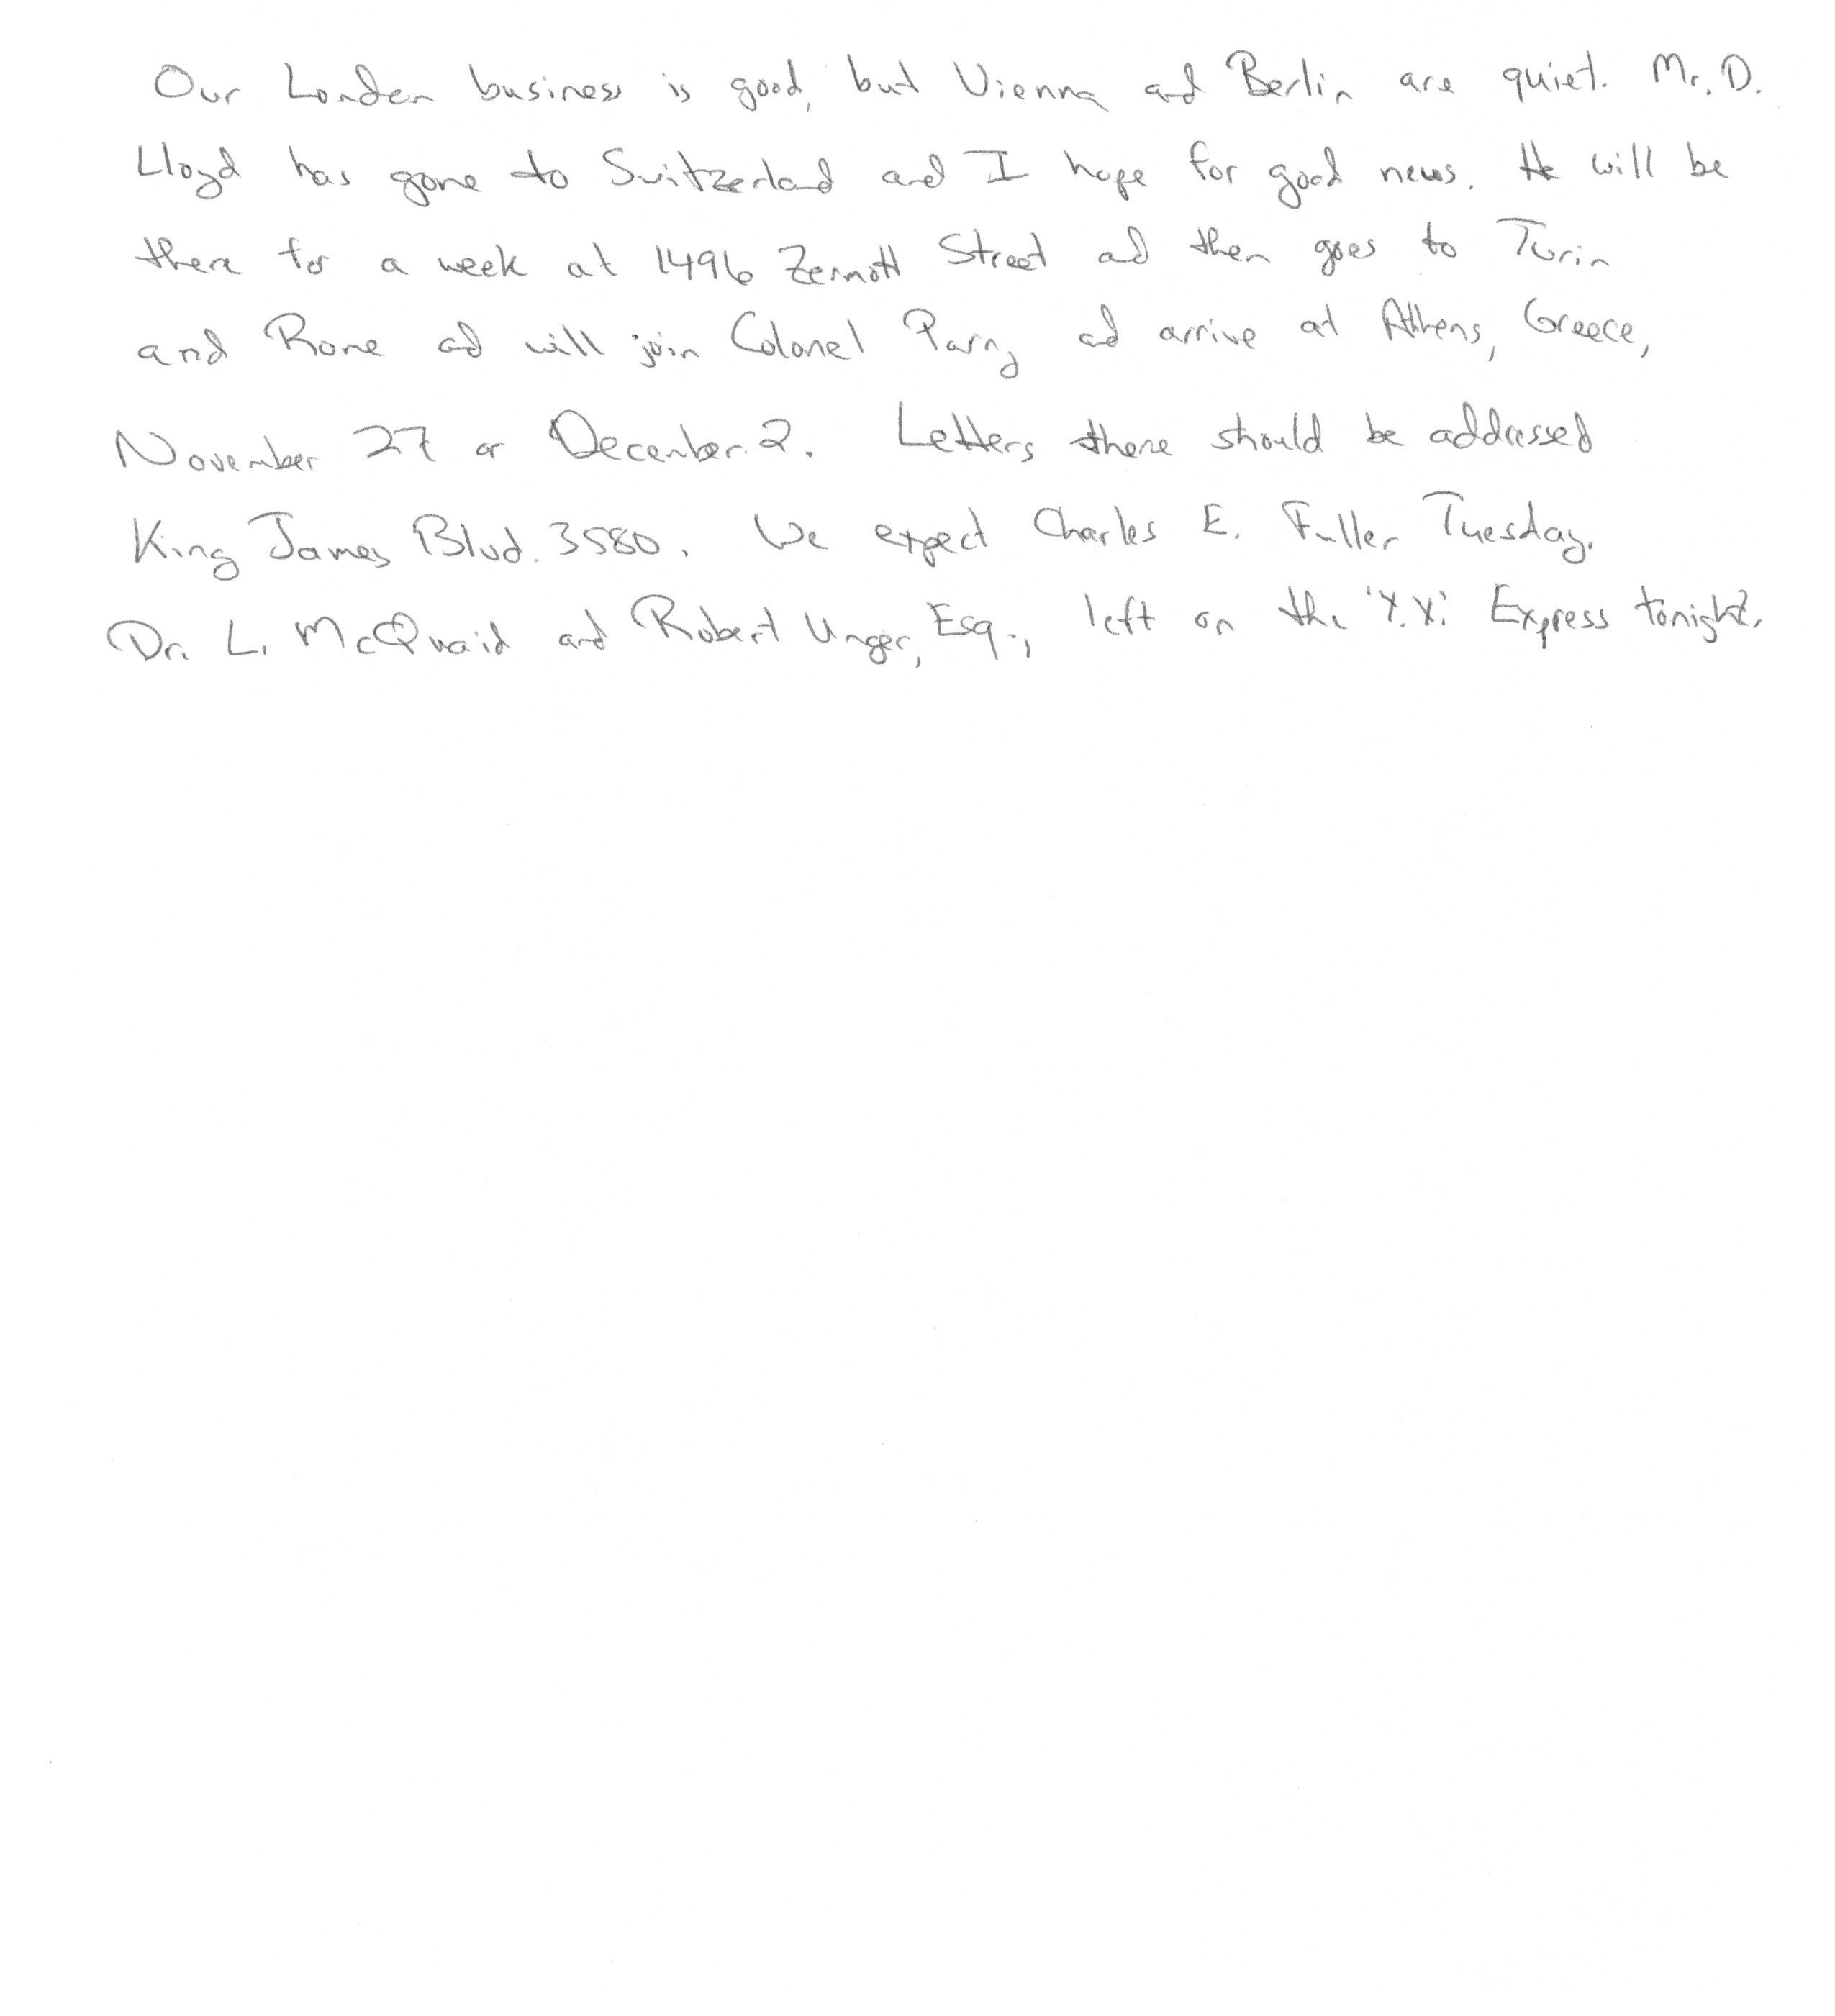 Our London business is good, but Vienna and Berlin are quiet. Mr. D.
Lloyd has gone to Switzerland and I hope for good news. He will be
there for a week at 1496 Zermott Street ad then goes to Turin
and Rome ad will join Colonel Parry ad arrive at Athens, Greece,
November 27 or December 2. Letters there should be addressed
King James Blvd. 3580. We expect Charles E. Fuller Tuesday.
Dr. L. McQuaid and Robert Unger, Esq., left on the 'Y.X.' Express tonight.